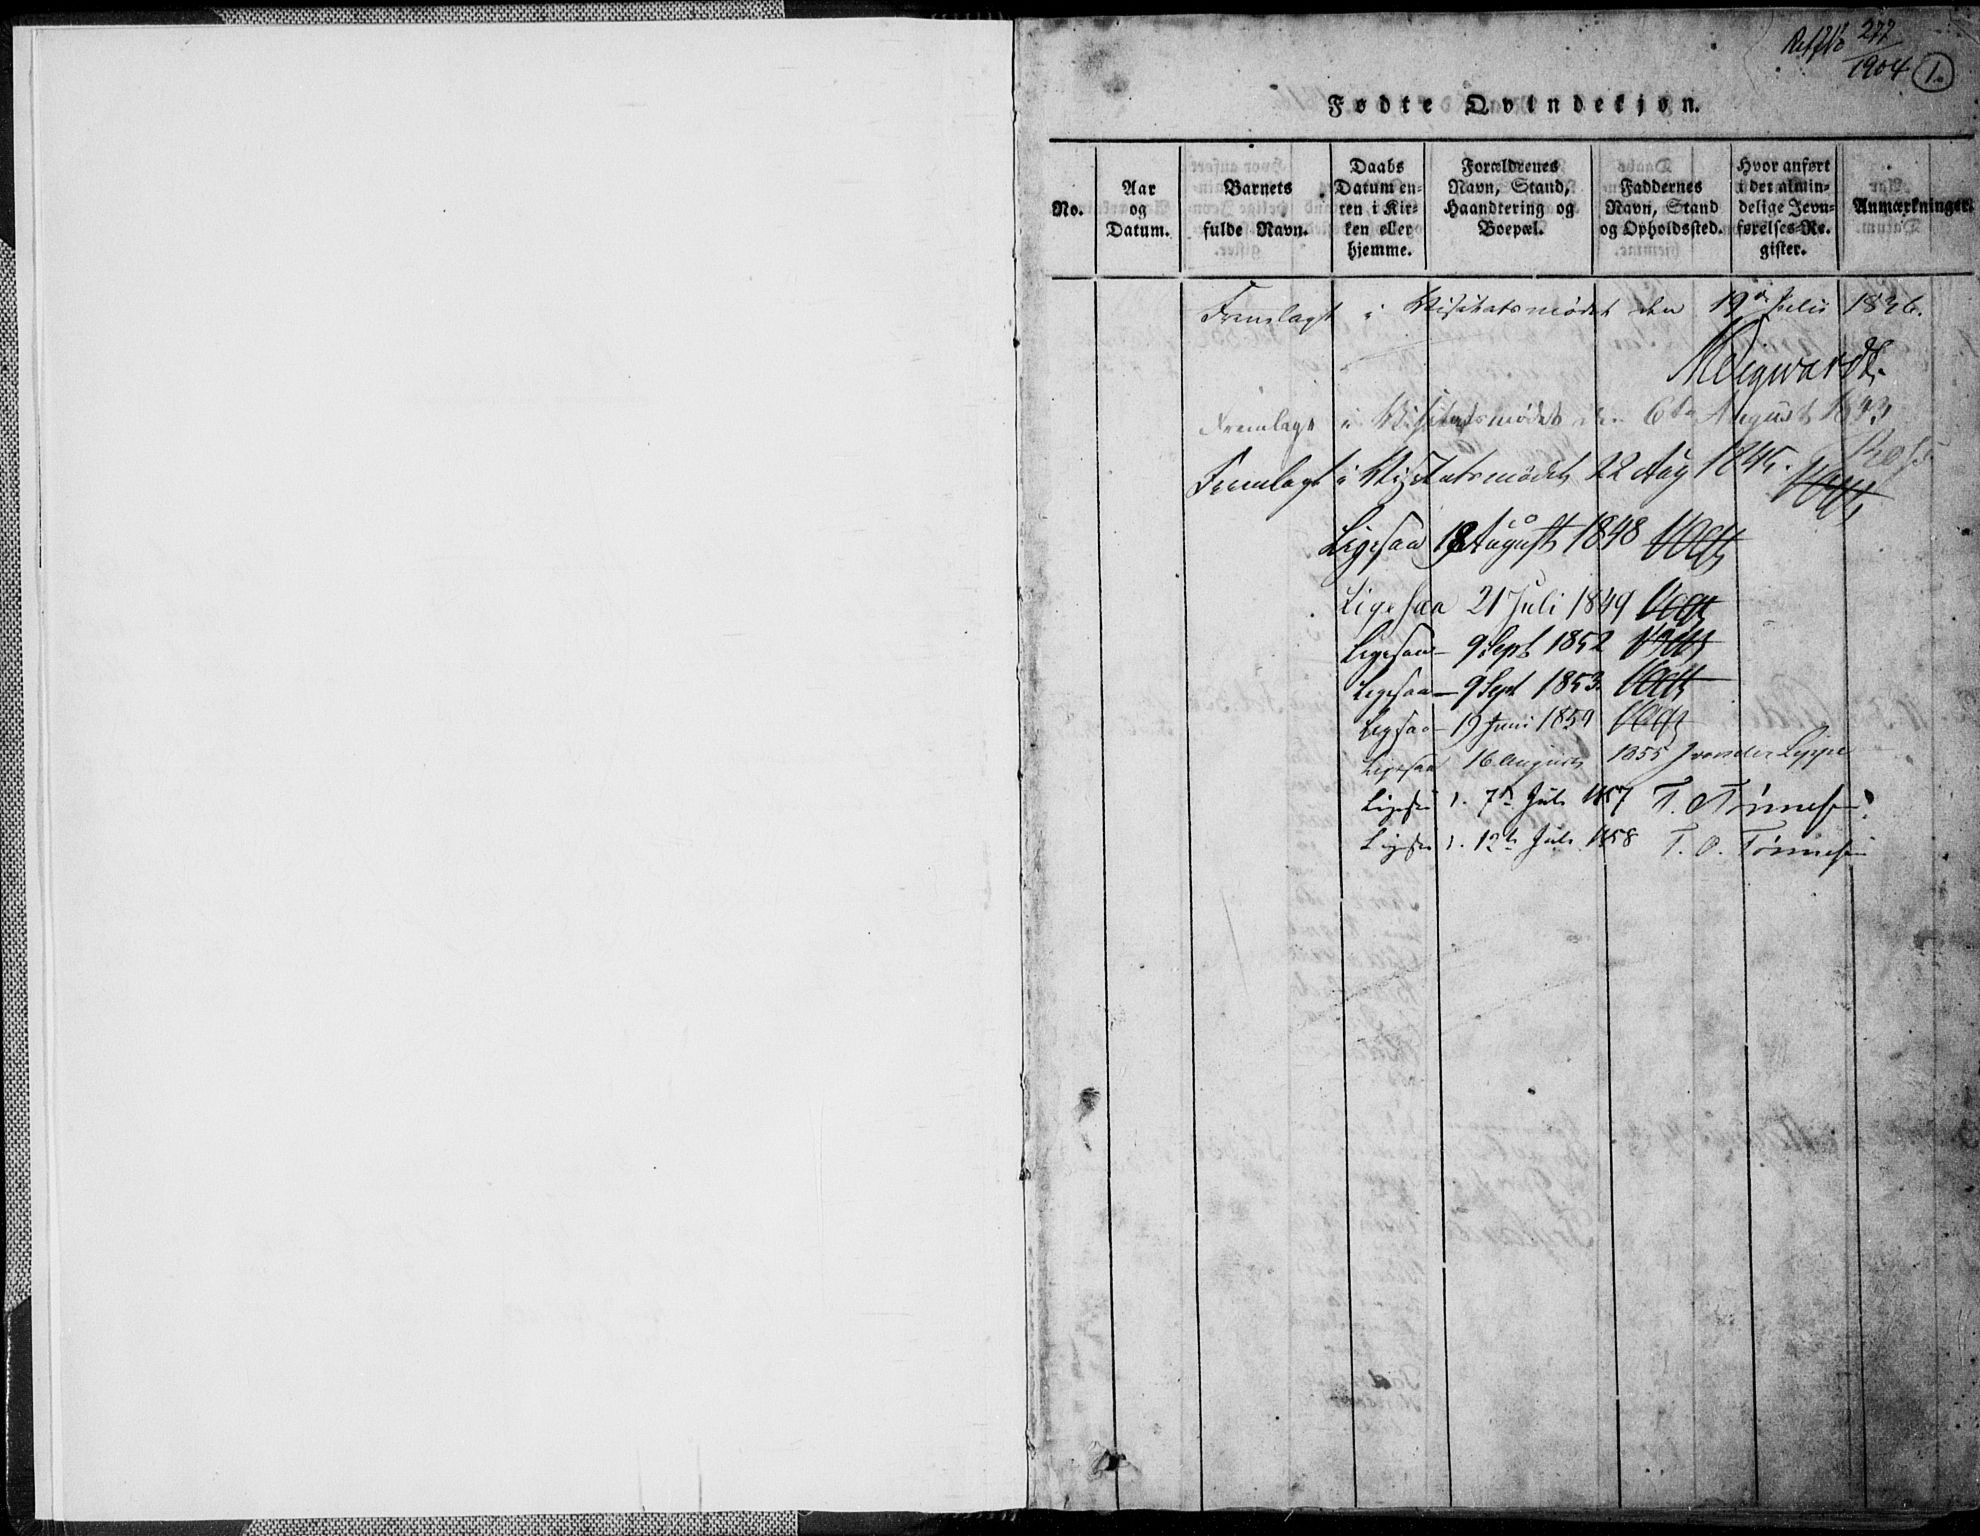 277
1904 1.
Fødte Qvindekjøn.
No.
Aar
og
Datum.
Barnets
fulde Navn.
Daabs
Datum en-
ten i Kir-
ken eller
hjemme.
Forældrenes
Navn, Stand,
Haandtering og
Boepæl.
Faddernes
Navn, Stand
og Opholdssted.
Hvor anført
i det almin-
delige Jevn-
førelses-Re-
gister.
Anmærkninger.
Fremlagt i Visitatsmødet den 19de Julii 1836.
Fremlagt i Visitatsmødet den 6te August 1833
Fremlagt i Visitatsmødet 22 Aug 1845. Vogt
Ligesaa 18 August 1848 Vogt
Ligesaa 21 Juli 1849 Vogt
Ligesaa 9 Sept 1852 Vogt
Ligesaa 9 Sept 1853. Vogt
Ligesaa 19 Juni 1854 Vogt
Ligesaa 16 August 1855 J von der Lippe
Ligesaa d. 7de Juli 1857 T. O. Tønnesen
Ligesaa d. 12te Juli 1858 T. O. Tønnesen